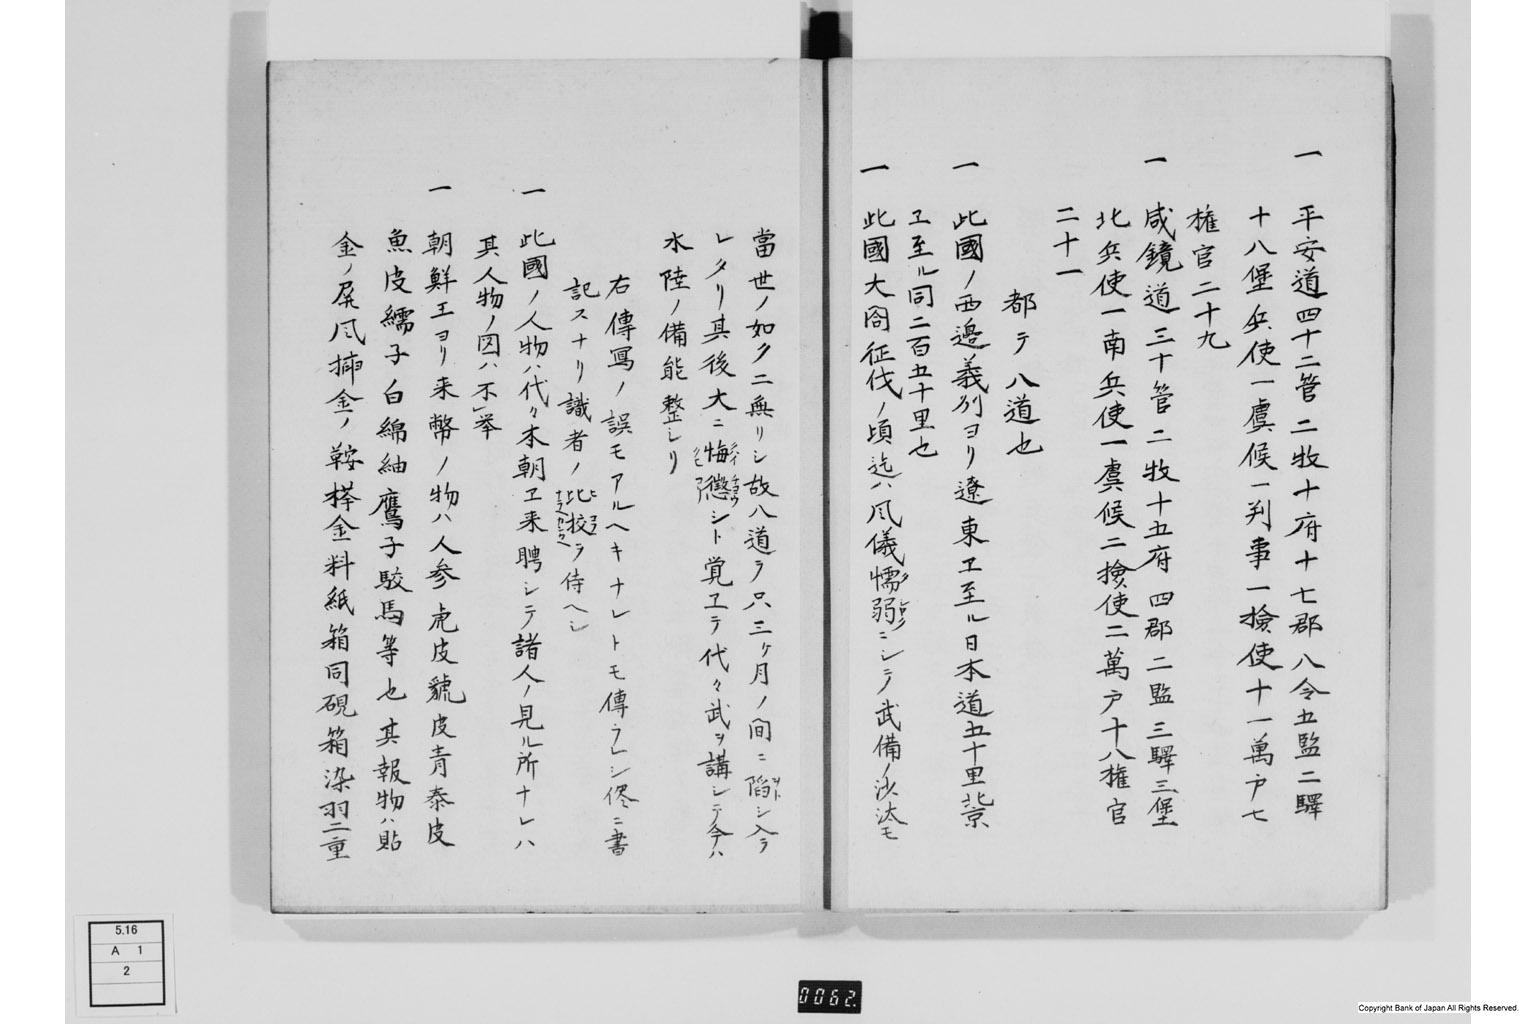 一 平安道四十二管二牧十府十七郡八令五監二驛
十八堡兵使一虞候一判事一撿使十一萬戸七
権官二十九
一 咸鏡道三十管二牧十五府四郡二監三驛三堡
北兵使一南兵使一虞候二撿使二萬戸十八権官
二十一
都テ八道也
一 此國ノ西邉義列ヨリ遼東ヱ至ル日本道五十里北京
ヱ至ル同二百五十里也
一 此國大閤征伐ノ頃迄ハ風儀懦弱ニシテ武備ノ沙汰モ
當世ノ如クニ無リシ故八道ヲ只三ケ月ノ間ニ陷シ入ラ
レタリ其後大ニ悔懲シト覚ヱテ代々武ヲ講シテ今ハ
水陸ノ備能整シリ
右傳冩ノ誤モアルヘキナレトモ傳ラレシ侭ニ書
記スナリ識者ノ比挍ヲ侍ヘシ
一 此國ノ人物ハ代々本朝ヱ来聘シテ諸人ノ見ル所ナレハ
其人物ノ図ハ不挙
一 朝鮮王ヨリ来幣ノ物ハ人参虎皮豹皮青泰皮
魚皮繻子白綿紬鷹子駮馬等也其報物ハ貼
金ノ屏風挿金ノ鞍橕金料紙箱同硯箱染羽二重
5.16
A 1
2
0062.
Copyright Bank of Japan All Rights Reserved.